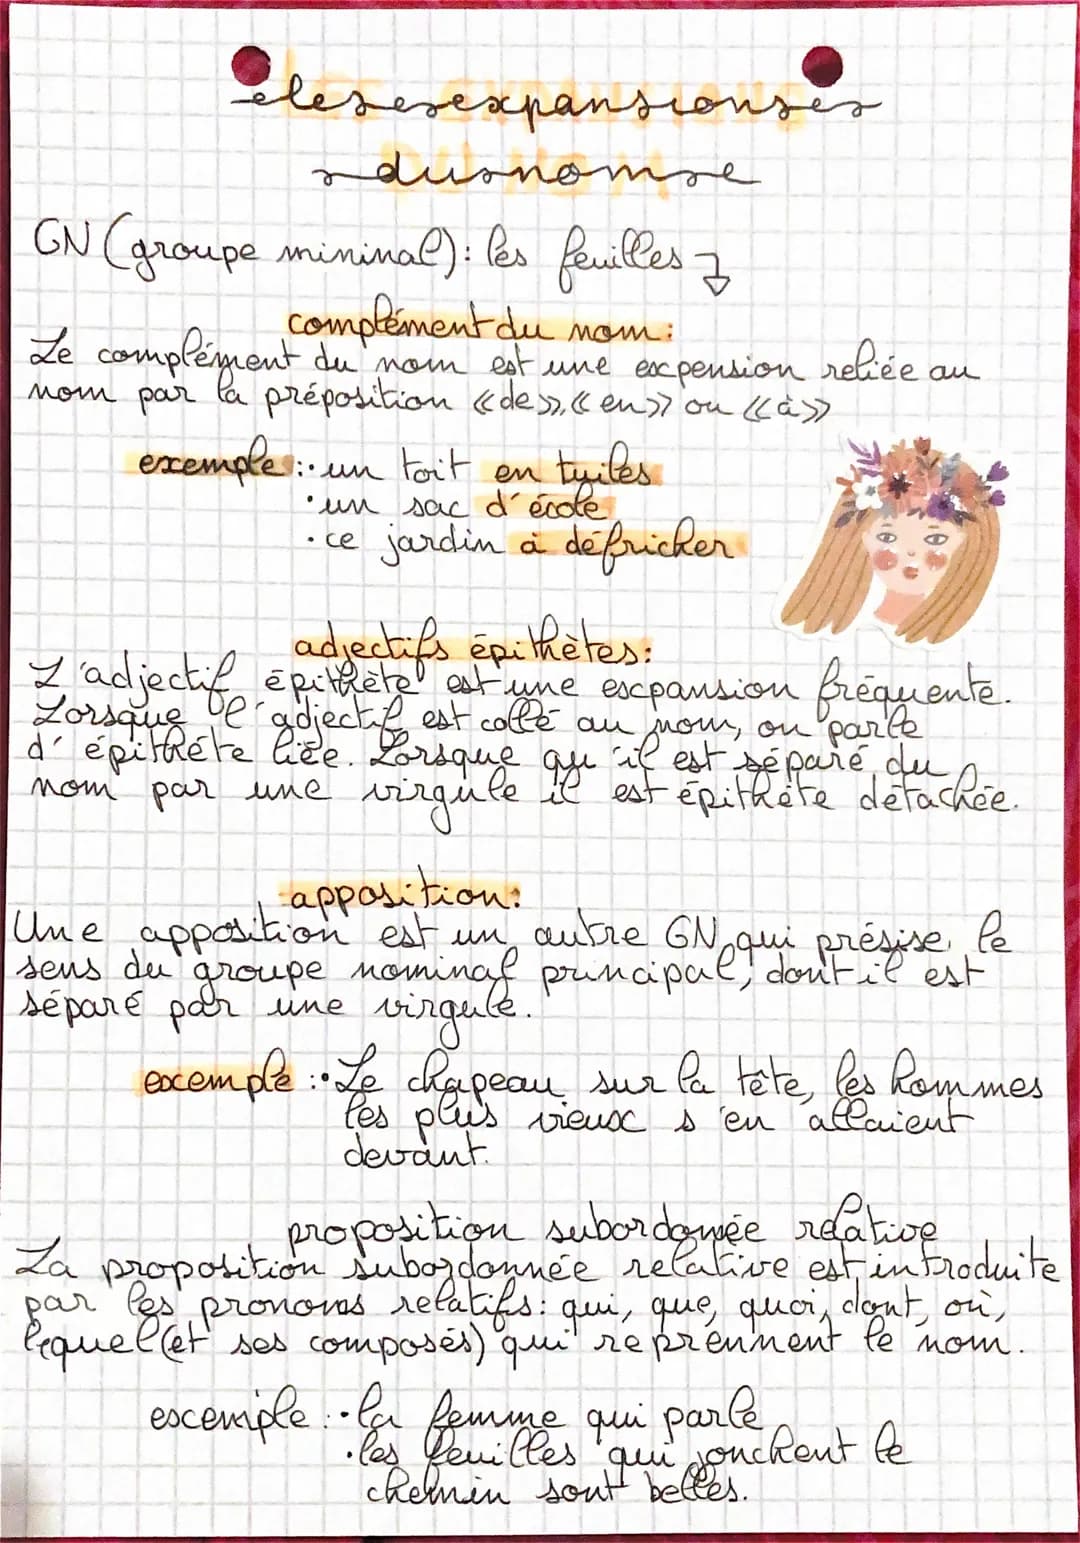 les expansions
du nom
GN (groupe mininal): les feuilles
complément du nom:
Le complément du nom est une expension reliée au
nom par la préposition «de», «en» ou «à»
exemple: • un toit en tuiles
• un sac d'école
• ce jardin à défricher
adjectifs épithètes:
L'adjectif épithète est une expansion fréquente.
Lorsque l'adjectif est collé au nom, on parle
d'épithéte liée. Lorsque qu'il est séparé du
nom par une virgule il est épithète détachée.
apposition:
Une apposition est un autre GN qui présise le
sens du groupe nominal principal, dont il est
séparé par une virgule.
exemple: • Le chapeau sur la tête, les hommes
les plus vieux s'en allaient
devant.
proposition subordonnée relative
La proposition subordonnée relative est introduite
par les pronoms relatifs: qui, que, quoi, dont, où,
lequel (et ses composés) qui reprennent le nom.
exemple: • la femme qui parle
• les feuilles qui jonchent le
chemin sont belles.